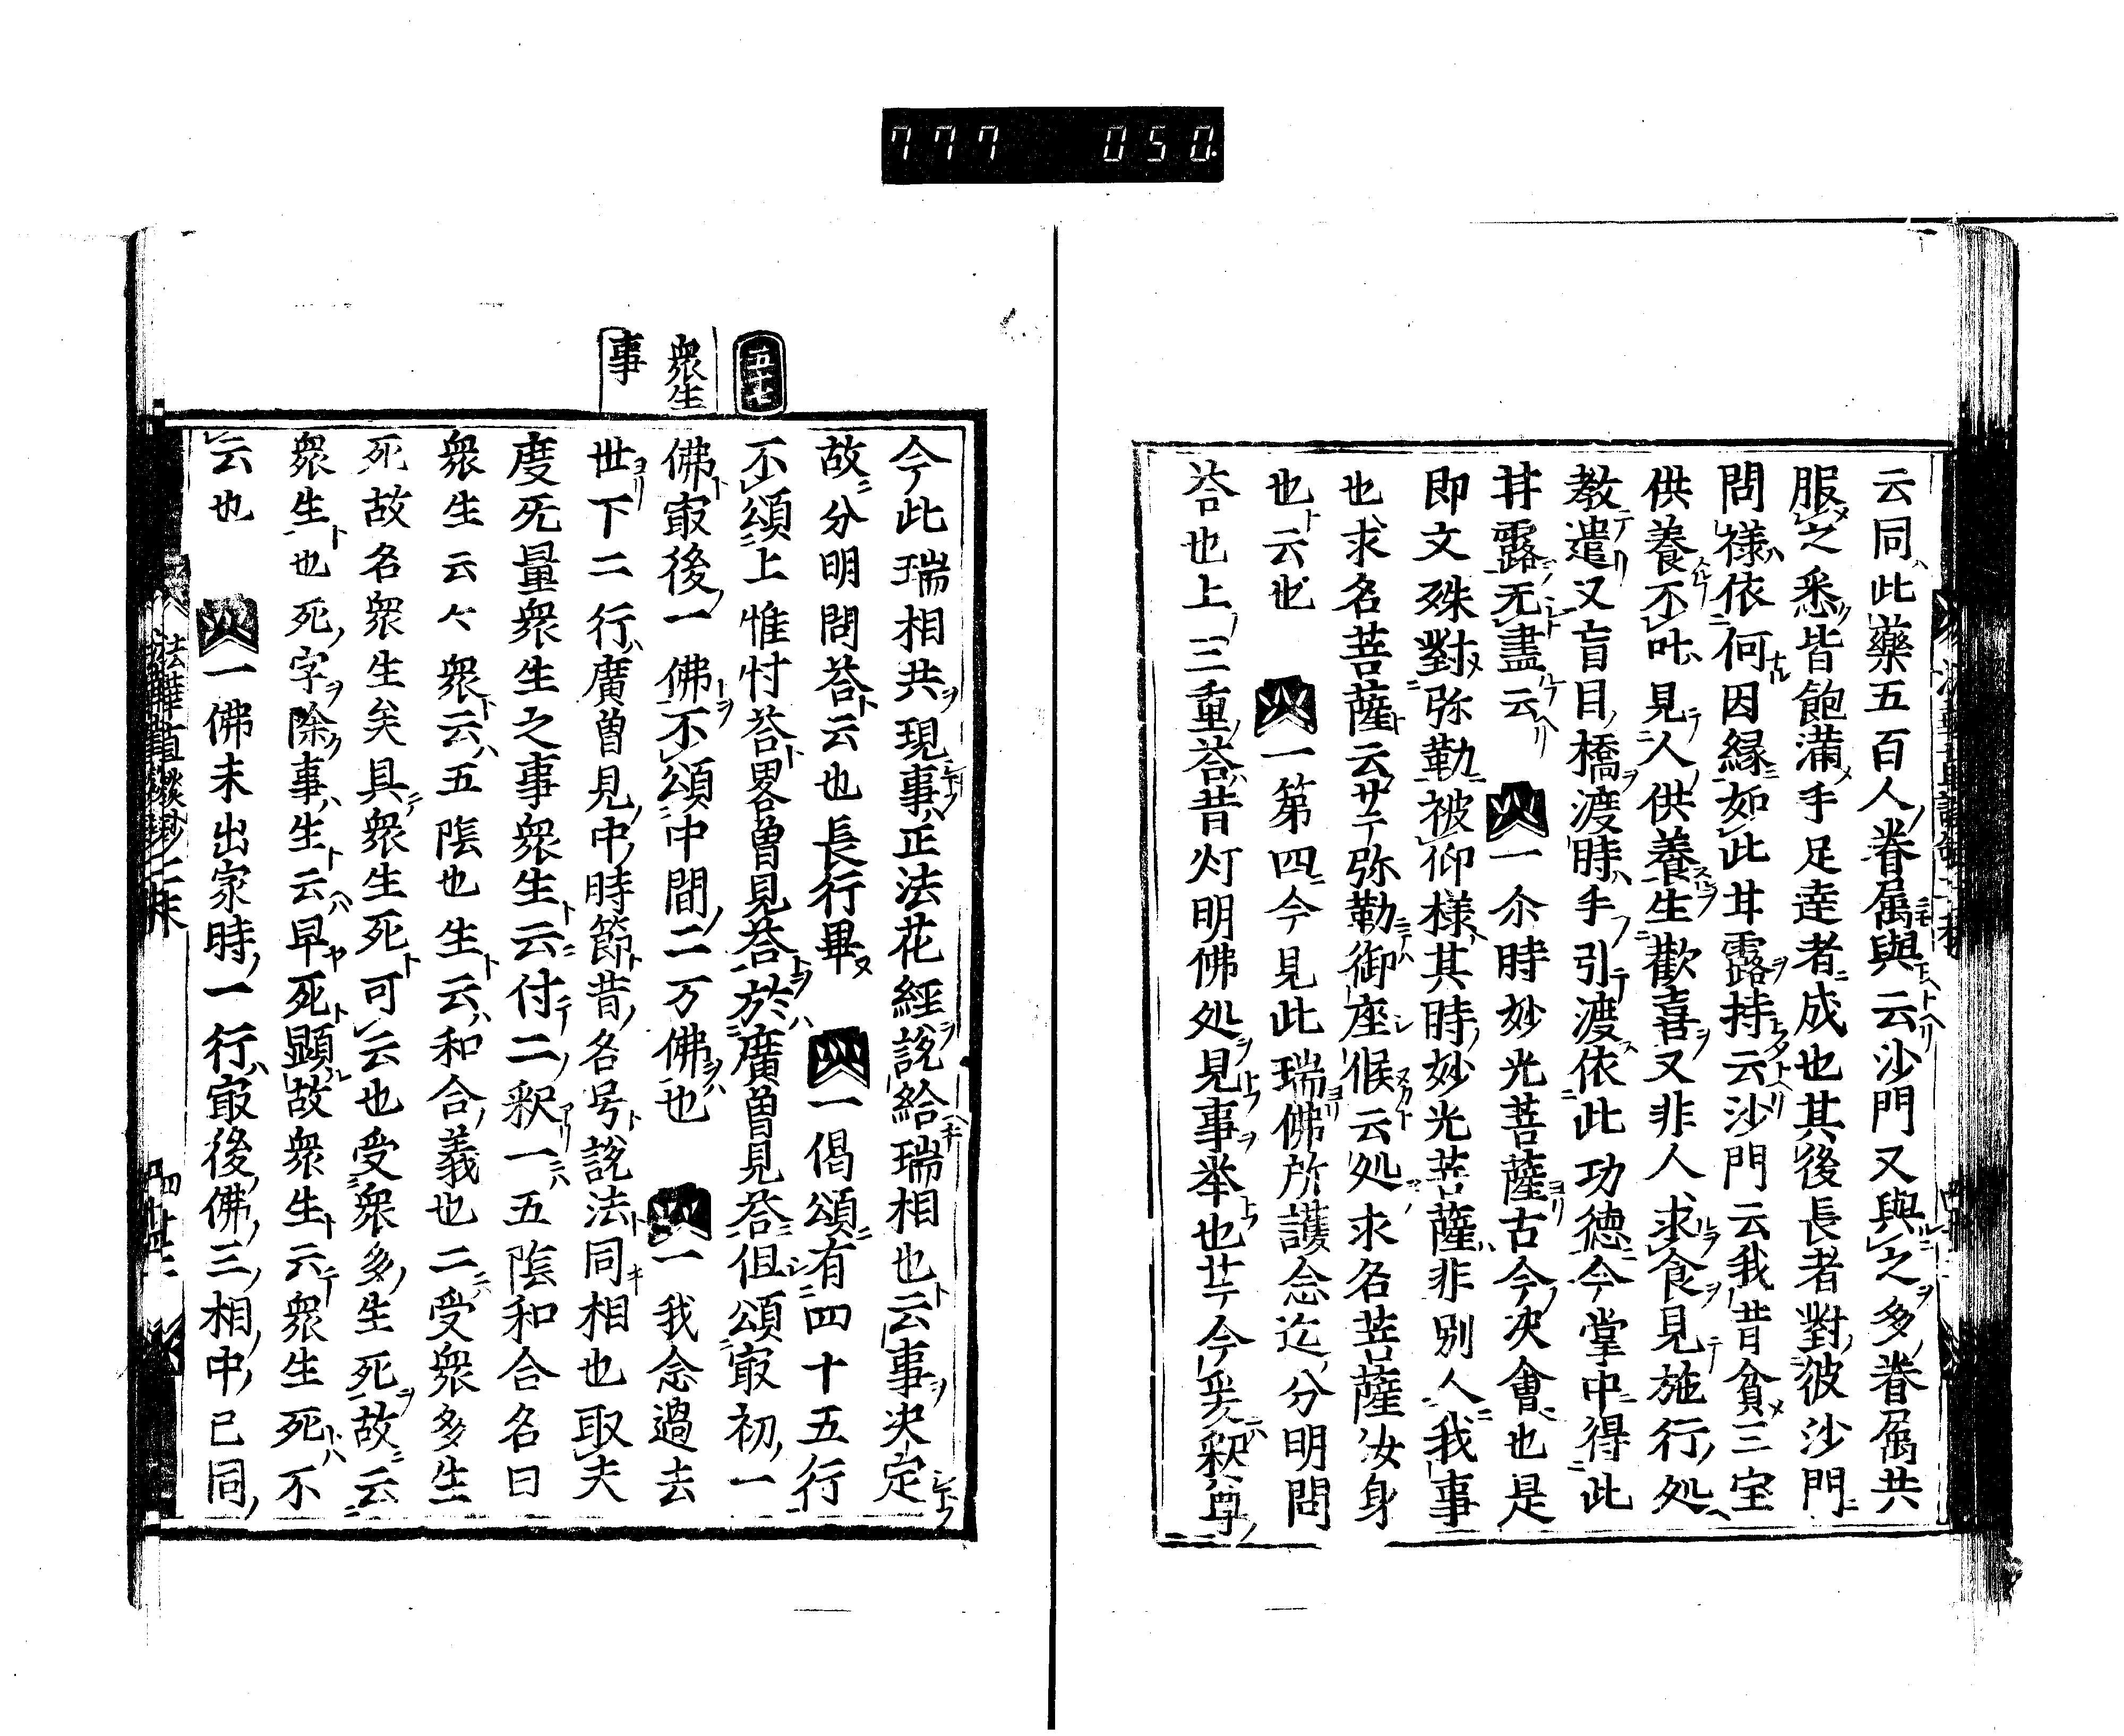 777 050
云同此藥五百人眷属與云沙門又與之多眷属共
服之悉皆飽滿手足逹者成也其後長者對彼沙門
問様依何因縁如此甘露持云沙門云我昔貧三宝
供養不叶見人供養生歡喜又非人求食見施行処
教遣又盲目橋渡時手引渡依此功徳今掌中得此
甘露无盡云　一尒時妙光菩薩古今决會也是
即文殊對弥勒被仰様其時妙光菩薩非別人我事
也求名菩薩云弥勒御座候云処求名菩薩汝身
也云也　一第四今見此瑞佛所護念迄分明問
荅也上三重荅昔灯明佛処見事举也今釈尊
五十七
衆生
事
今此瑞相共現事正法花經說給瑞相也云事决定
故分明問荅云也長行畢　一偈頌有四十五行
不頌上惟忖荅畧曽見荅於廣曽見荅但頌㝡初一
佛㝡後一佛不頌中間二万佛也　一我念過去
世下二行廣曽見中時節昔名号說法同相也取夫
度旡量衆生之事衆生云付二釈一五陰和合名曰
衆生云々衆云五陰也生云和合義也二受衆多生
死故名衆生矣具衆生死可云也受衆多生死故云
衆生也死字除事生云早死顕故衆生云衆生死不
云也　一佛未出家時一行㝡後佛三相中已同
法華直談鈔二末